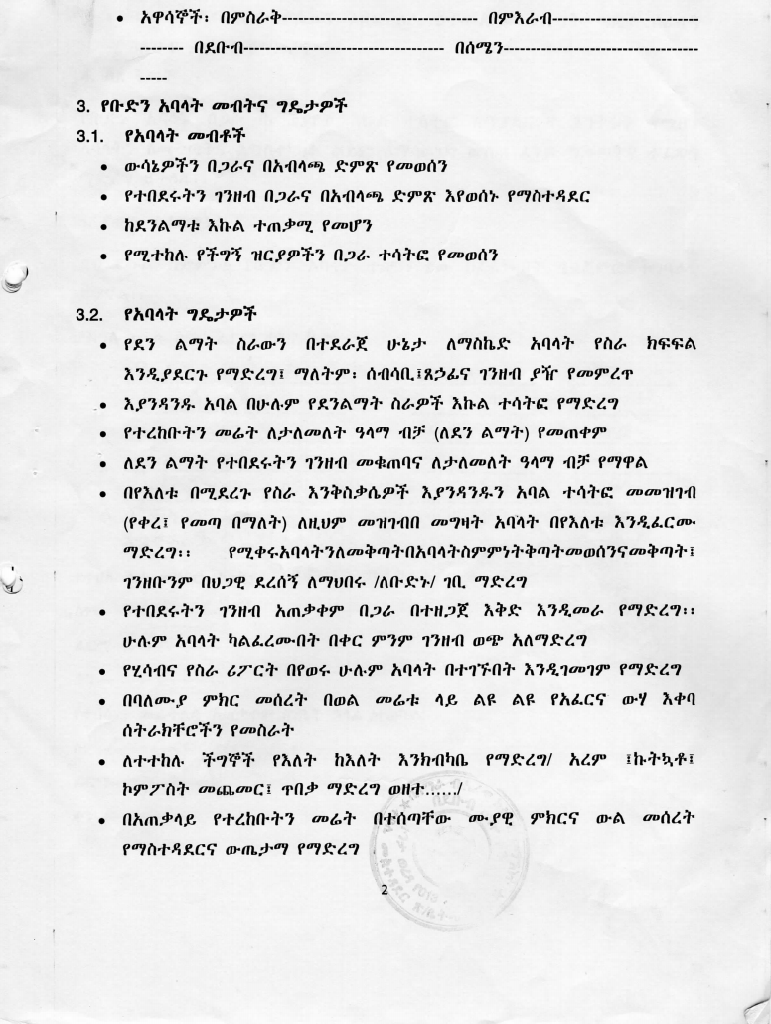 • አዋሳኞች፡ በምስራቅ------------------------------------ በምእራብ---------------------------
-------- በደቡብ------------------------------------- በሰሜን------------------------------------
-----
3. የቡድን አባላት መብትና ግዴታዎች
3.1. የአባላት መብቶች
• ውሳኔዎችን በጋራና በአብላጫ ድምጽ የመወሰን
• የተበደሩትን ገንዘብ በጋራና በአብላጫ ድምጽ እየወሰኑ የማስተዳደር
• ከደንልማቱ እኩል ተጠቃሚ የመሆን
• የሚተከሉ የችግኝ ዝርያዎችን በጋራ ተሳትፎ የመወሰን
3.2. የአባላት ግዴታዎች
• የደን ልማት ስራውን በተደራጀ ሁኔታ ለማስኬድ አባላት የስራ ክፍፍል
እንዲያደርጉ የማድረግ፤ ማለትም፡ ሰብሳቢ፤ጸኃፊና ገንዘብ ያዥ የመምረጥ
• እያንዳንዱ አባል በሁሉም የደንልማት ስራዎች እኩል ተሳትፎ የማድረግ
• የተረከቡትን መሬት ለታለመለት ዓላማ ብቻ (ለደን ልማት) የመጠቀም
• ለደን ልማት የተበደሩትን ገንዘብ መቁጠባና ለታለመለት ዓላማ ብቻ የማዋል
• በየእለቱ በሚደረጉ የስራ እንቅስቃሴዎች እያንዳንዱን አባል ተሳትፎ መመዝገብ
(የቀረ፤ የመጣ በማለት) ለዚህም መዝገብበ መግዛት አባላት በየእለቱ እንዲፈርሙ
ማድረግ፡፡ የሚቀሩአባላትንለመቅጣትበአባላትስምምነትቅጣትመወሰንናመቅጣት፤
ገንዘቡንም በህጋዊ ደረሰኝ ለማህበሩ /ለቡድኑ/ ገቢ ማድረግ
• የተበደሩትን ገንዘብ አጠቃቀም በጋራ በተዘጋጀ እቅድ እንዲመራ የማድረግ፡፡
ሁሉም አባላት ካልፈረሙበት በቀር ምንም ገንዘብ ወጭ አለማድረግ
• የሂሳብና የስራ ሪፖርት በየወሩ ሁሉም አባላት በተገኙበት እንዲገመገም የማድረግ
• በባለሙያ ምክር መሰረት በወል መሬቱ ላይ ልዩ ልዩ የአፈርና ውሃ እቀባ
ሰትራክቸሮችን የመስራት
• ለተተከሉ ችግኞች የእለት ከእለት እንክብካቤ የማድረግ/ አረም ፤ኩትኳቶ፤
ኮምፖስት መጨመር፤ ጥበቃ ማድረግ ወዘተ....../
• በአጠቃላይ የተረከቡትን መሬት በተሰጣቸው ሙያዊ ምክርና ውል መሰረት
የማስተዳደርና ውጤታማ የማድረግ
2